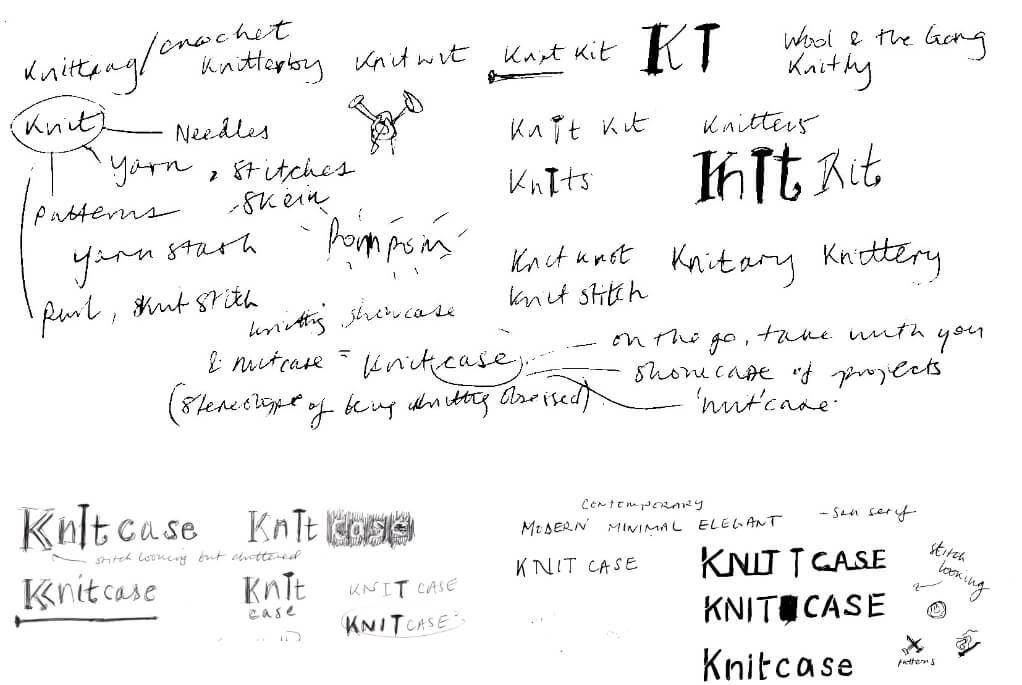 Knitrag/crochet
Knitterby
Knitwit
Knit Kit
KT
Wool & the Gang
Knitly
Knit
Needles
Yarn, Stitches
Skein
Patterns
Yarn stash
Purl, Knit Stitch
Pom pom
Knit Kit
Knitters
Knits
Knit Kit
Knit knot
Knitary
Knittery
Knit stitch
Knitting showcase
& nutcase = Knitcase
(Stereotype of being knitting obsessed)
on the go, take with you
showcase of projects
'nut'case
Knit case
Knit case
stitch looking but cluttered
Knitcase
Knit
case
KNIT CASE
KNITCASE
CONTEMPORARY
MODERN MINIMAL ELEGANT
- San serif
KNIT CASE
KNIT CASE
KNIT CASE
Knitcase
stitch
looking
patterns